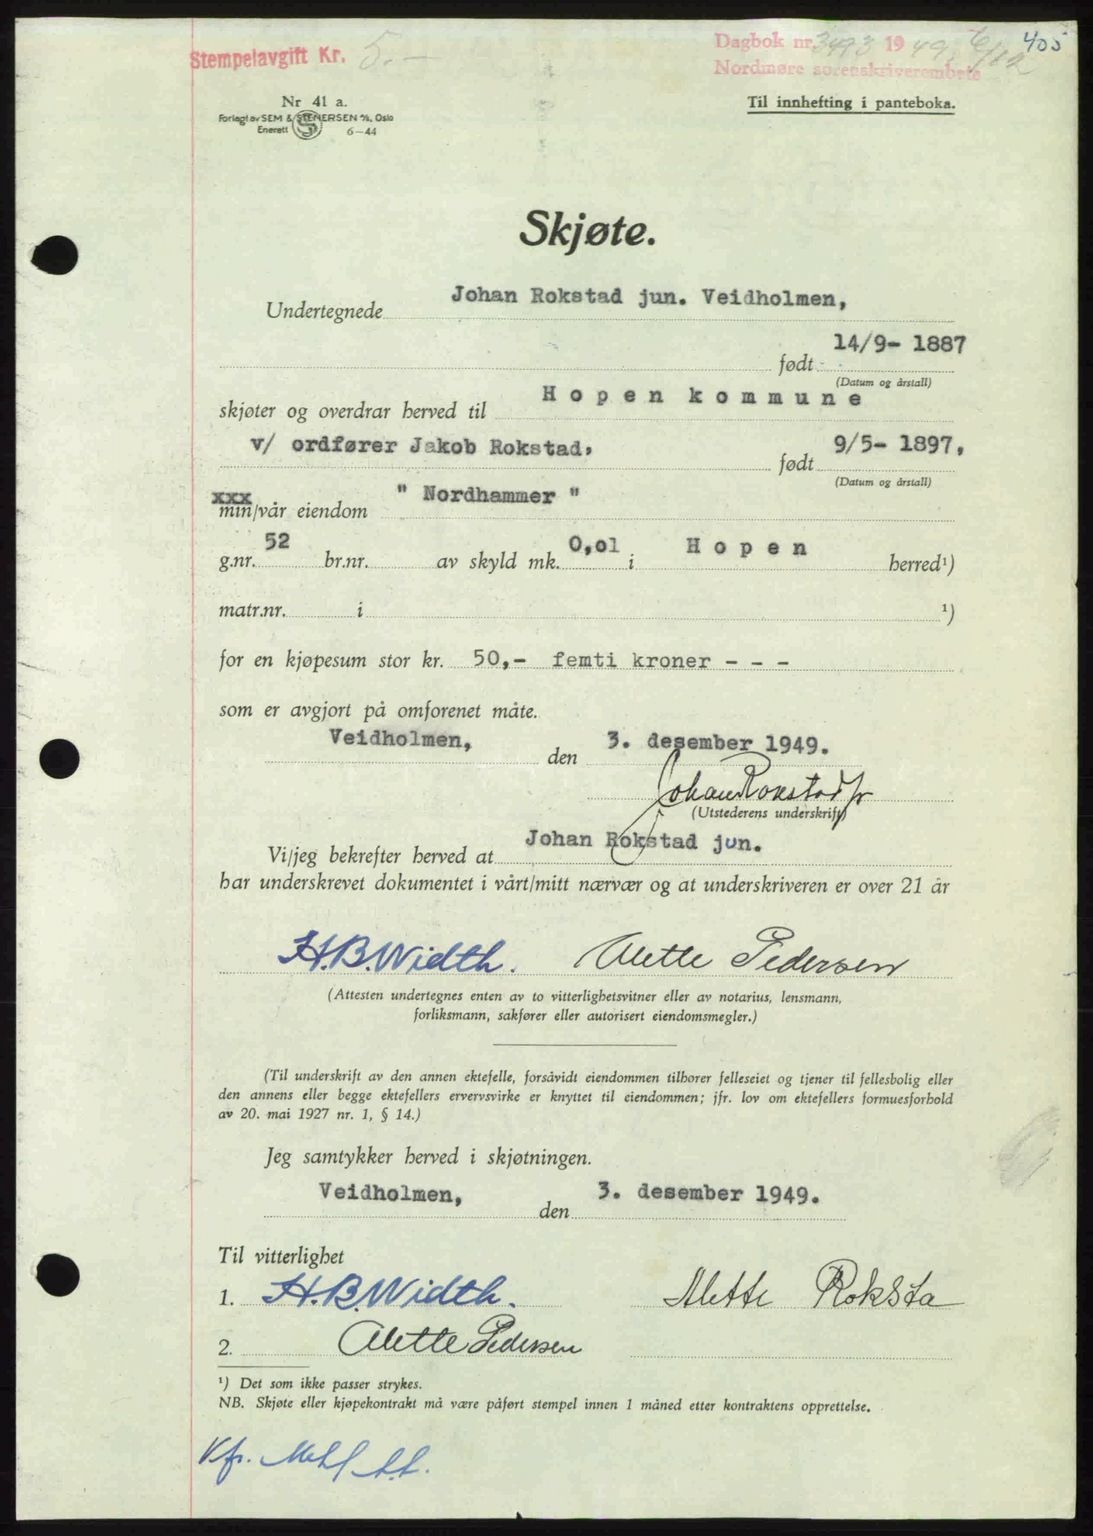 Stempelavgift Kr. 5.-
Dagbok nr. 3493 1949. 6/12
405
Nordmøre sorenskriverembete
Nr 41 a.
Til innhefting i panteboka.
Forlagt av SEM & STENERSEN A/S, Oslo
Enerett S 6-44
Skjøte.
Undertegnede Johan Rokstad jun. Veidholmen,
født 14/9- 1887
(Datum og årstall)
skjøter og overdrar herved til Hopen kommune
v/ ordfører Jakob Rokstad, født 9/5- 1897,
(Datum og årstall)
xxx
min/vår eiendom " Nordhammer "
g.nr. 52 br.nr. av skyld mk. 0,01 i Hopen herred¹)
matr.nr. i ¹)
for en kjøpesum stor kr. 50,- femti kroner - - -
som er avgjort på omforenet måte.
Veidholmen, den 3. desember 1949.
Johan Rokstad jr
(Utstederens underskrift)
Vi/jeg bekrefter herved at Johan Rokstad jun.
har underskrevet dokumentet i vårt/mitt nærvær og at underskriveren er over 21 år
H.B. Width. Alette Pedersen
(Attesten undertegnes enten av to vitterlighetsvitner eller av notarius, lensmann,
forliksmann, sakfører eller autorisert eiendomsmegler.)
(Til underskrift av den annen ektefelle, forsåvidt eiendommen tilhører felleseiet og tjener til fellesbolig eller
den annens eller begge ektefellers ervervsvirke er knyttet til eiendommen; jfr. lov om ektefellers formuesforhold
av 20. mai 1927 nr. 1, § 14.)
Jeg samtykker herved i skjøtningen.
Veidholmen, den 3. desember 1949.
Til vitterlighet
1. H.B. Width. Alette Roksta
2. Alette Pedersen
¹) Det som ikke passer strykes.
NB. Skjøte eller kjøpekontrakt må være påført stempel innen 1 måned etter kontraktens opprettelse.